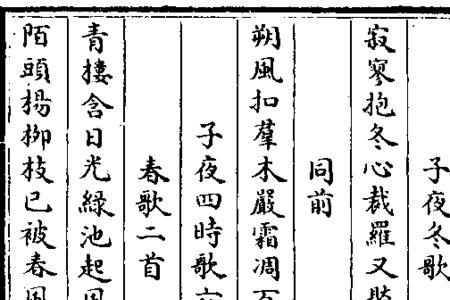 子夜冬歌
寂寥抱冬心裁羅又
同前
朔風扣羣木嚴霜凋百
子夜四時歌六
春歌二首
青摟含日光綠池起風
陌頭楊柳枝已被春風